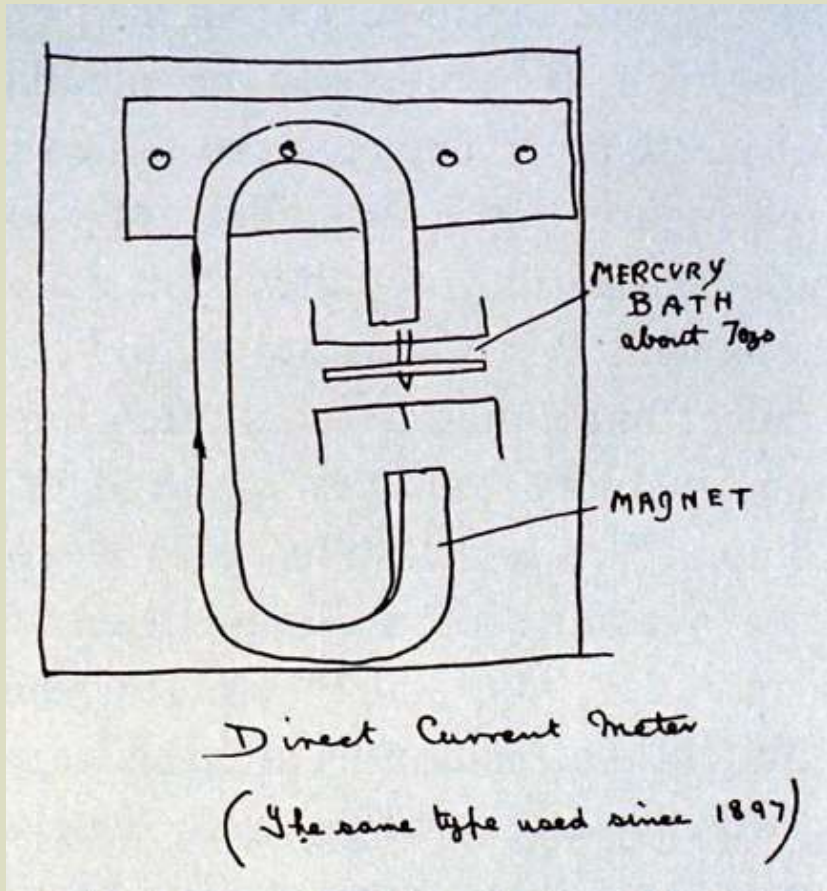 MERCURY
BATH
about 7ozs
MAGNET
Direct Current Meter
(The same type used since 1897)